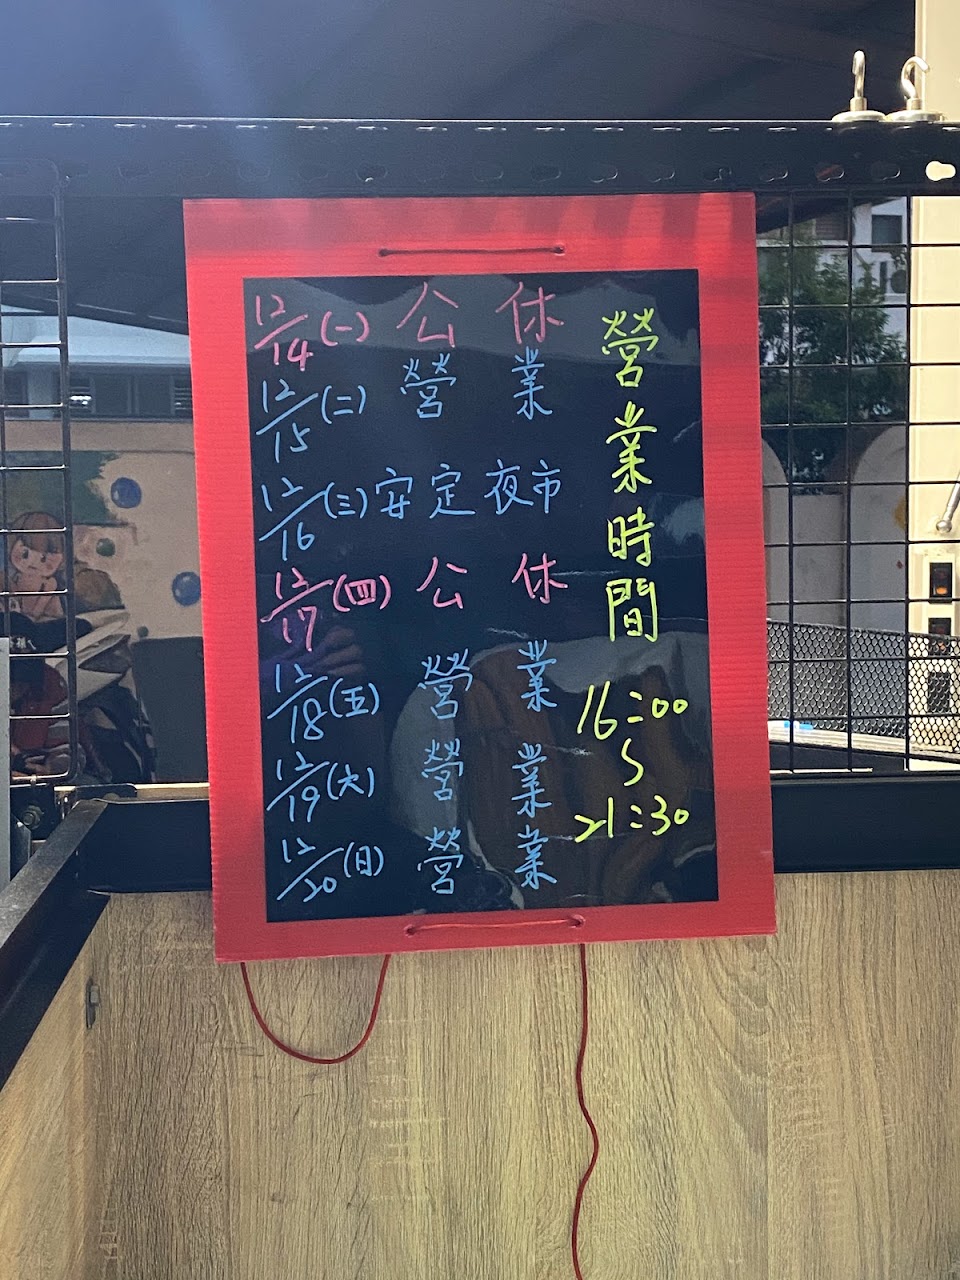 12/14(一) 公休
12/15(二) 營業
12/16(三) 安定夜市
12/17(四) 公休
12/18(五) 營業
12/19(六) 營業
12/20(日) 營業
營業時間
16:00
~
21:30